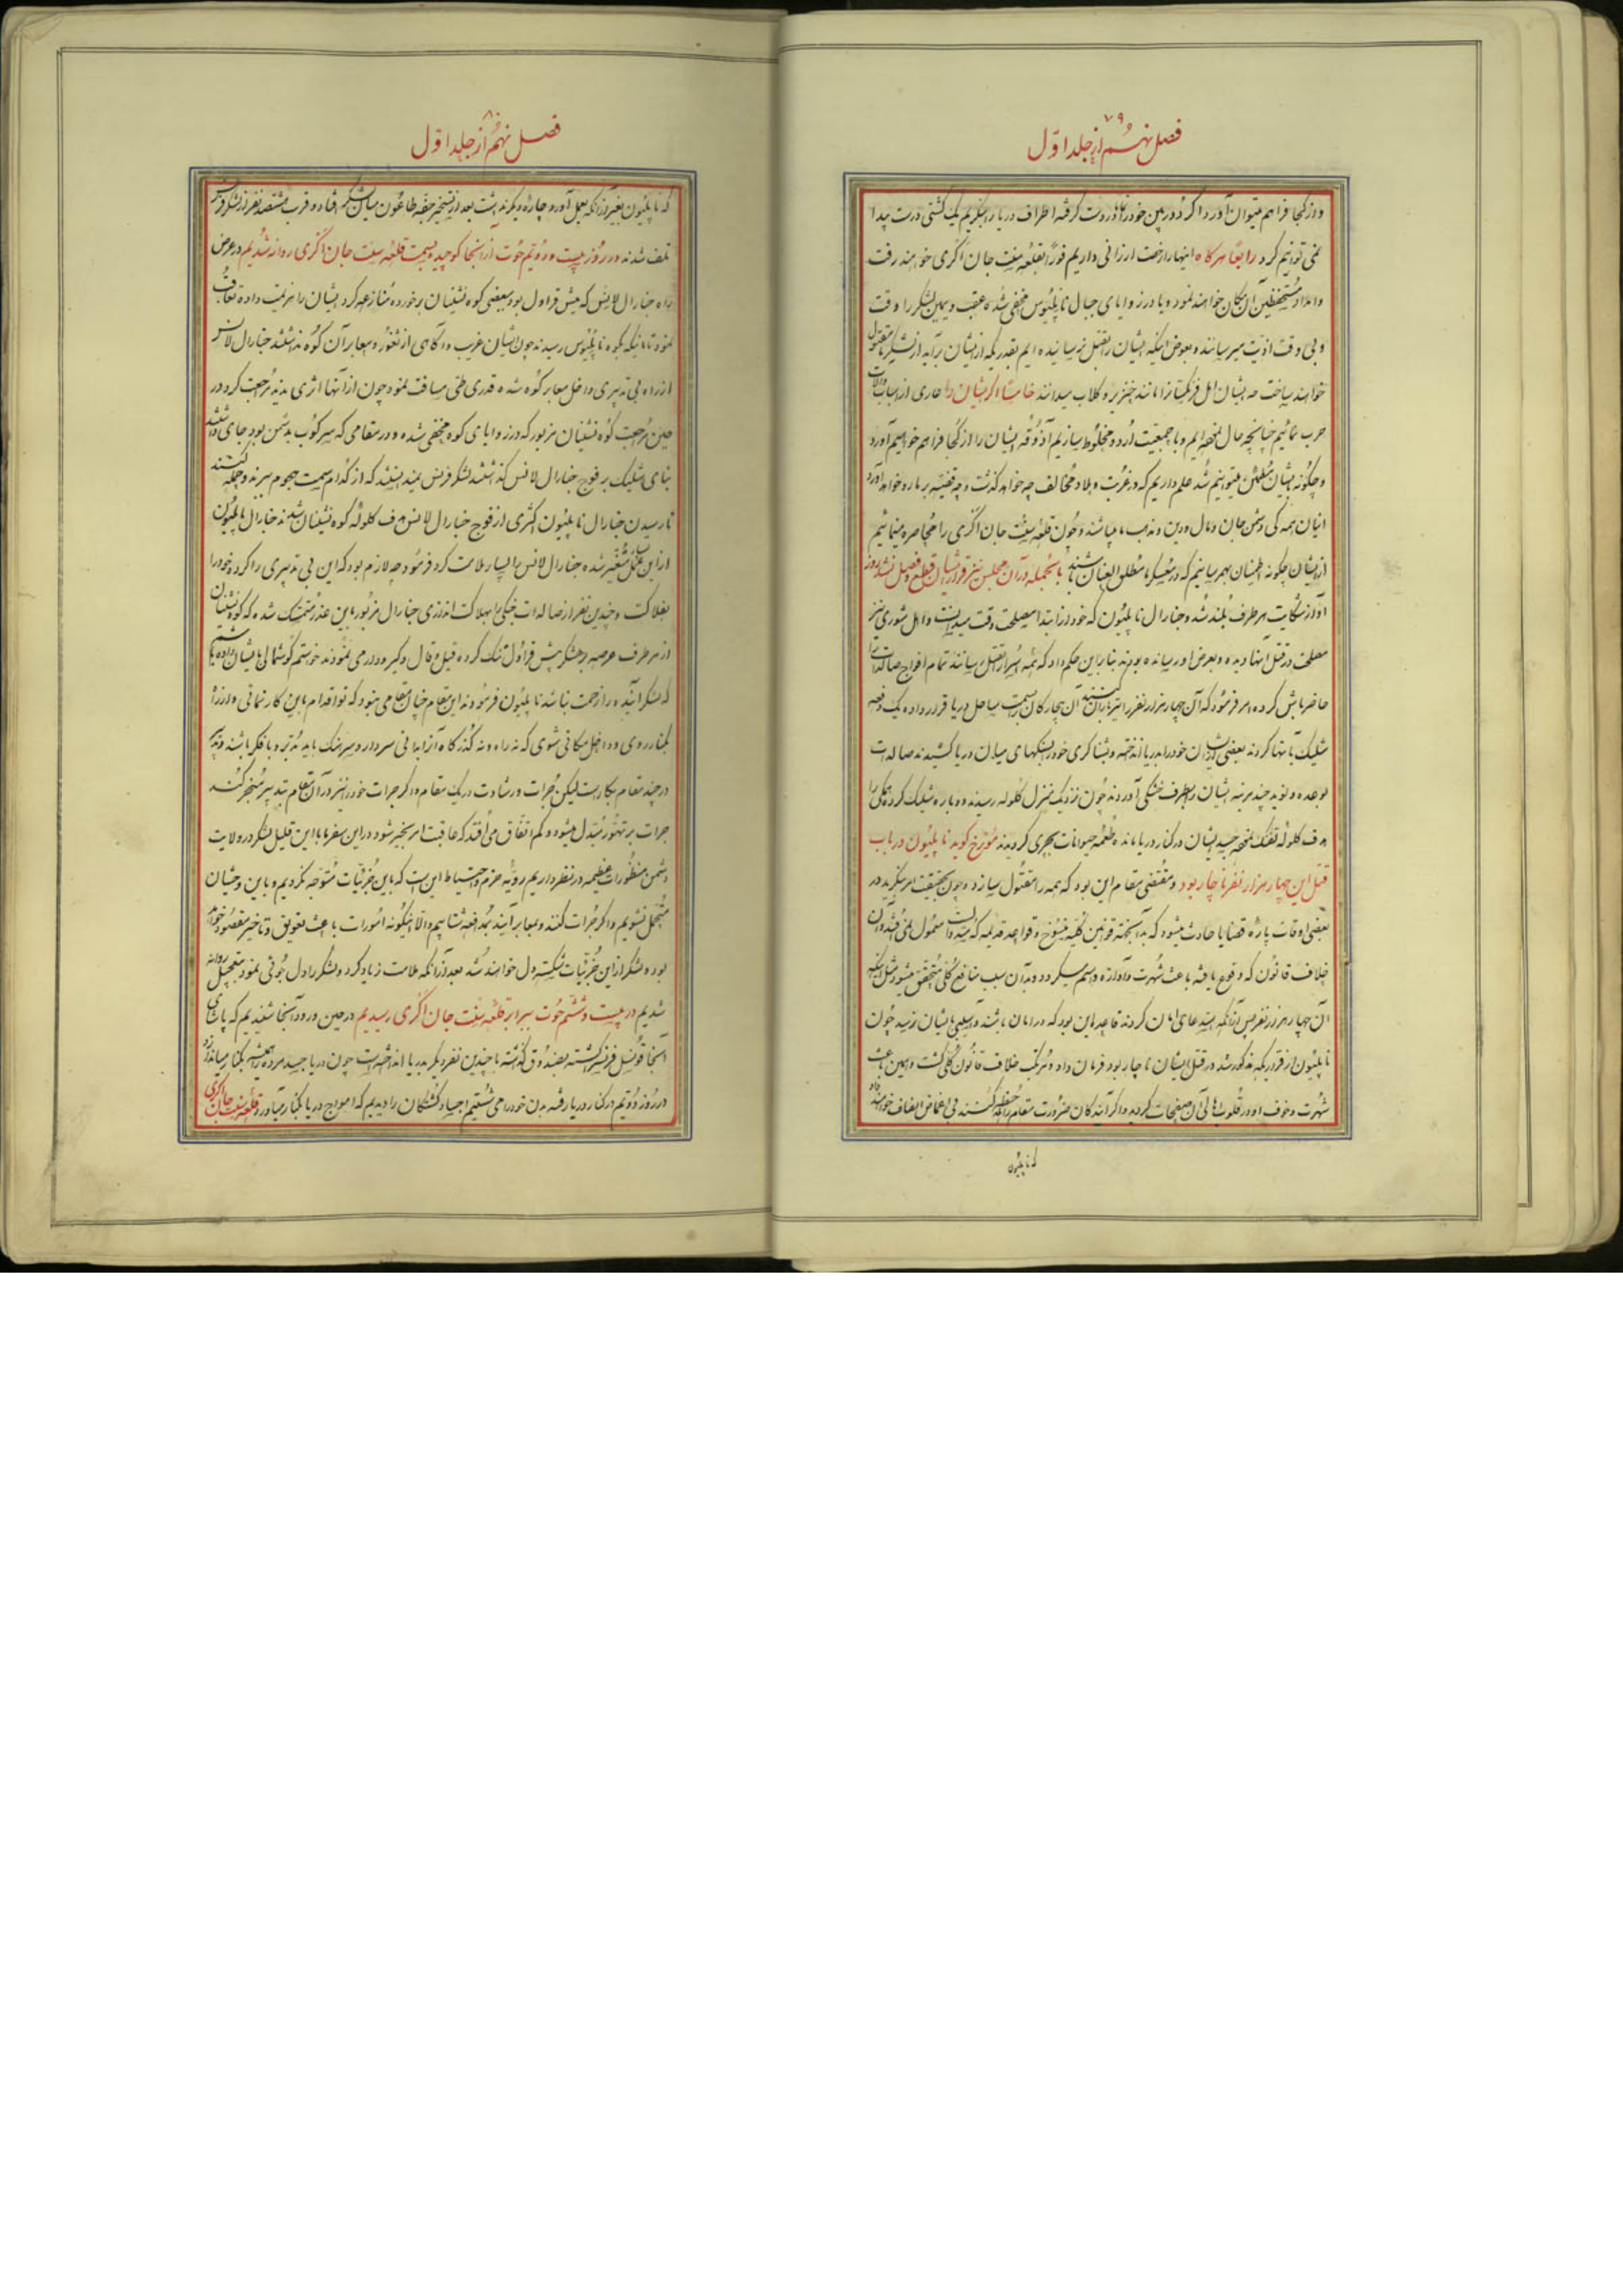 ۷۹
فصل نهم از جلد اوّل
و از کجا فراهم میتوان آورد اگر دوربین خود را بدست گرفته اطراف دریا را بنگریم یک کشتی درست پیدا
نمی توانیم کرد رابعاً هرگاه اینها را رخصت ارزانی داریم فوراً بقلعه سنت جان اگری خواهند رفت
و امداد مستحفظین آن مکان خواهند نمود و یا در زوایای جبال ناپلیوس مخفی شده عقب و یمین لشکر را وقت
و بی وقت اذیت میرسانند و بعوض اینکه ایشان را بقتل نرسانیده ایم بقدریکه از ایشان برآید از لشکر ما مقتول
خواهند ساخت چه ایشان اهل فرنگستان را مانند خنزیر و کلاب میدانند خامساً اگر ایشان را عاری از اسباب و آلات
حرب نمائیم چنانچه حال مخفه ایم و با جمعیت اردو مخلوط سازیم آذوقه ایشان را از کجا فراهم خواهیم آورد
و چگونه بایشان مطمئن میتوانیم شد علم داریم که در غربت و بلاد مخالف چه خواهد گذشت و چه قضیّه بر ما رو خواهد آورد
اینان همه گی دشمن جان و مال و دین و مذهب ما میباشند و چون قلعه سنت جان اگری را محاصره مینمائیم
از ایشان چگونه اطمینان بهم رسانیم که در معسکر ما مطلق العنان باشند بالجمله در آن مجلس نیز قرار ایشان قطع و فصل نشد روز
آواز شکایت هر طرف بلند شد و جنارال ناپلیون که خود از ابتدا مصلحت وقت میدانست و اهل شوری نیز
مصلحت در قتل آنها دیده و بعرض او رسانده بودند بنابراین حکم داد که همه اسرا را بقتل رسانند تمام افواج صالدات را
حاضر باش کرده امر فرمود که آن چهار هزار نفر را تیرباران کنند آن بیچارگان را بسمت ساحل دریا قرار داده یک دفعه
شلیک بآنها کردند بعضی ایشان خود را بدریا انداخته و بشناگری خود را بسنگهای میان دریا کشیدند صالدات
بوعده و نوید چند مرتبه ایشان را بطرف خشکی آوردند چون نزدیک بمنزل گلوله رسیدند دوباره شلیک کرده همگی را
هدف گلوله تفنگ نمود جسد ایشان در کنار دریا مانده طعمه حیوانات بحری گردیدند مورّخ گوید ناپلیون در باب
قتل این چهار هزار نفر ناچار بود و مقتضی مقام این بود که همه را مقتول سازد و چون بحقیقت امر بنگرید در
بعضی اوقات پاره قضایا حادث میشود که به آنجهته قوانین کلیّه منسوخ و قواعد قدیمه که معمول
خلاف قانون که وقوع یافته باعث شهرت و آوازه و اسم میگردد و بدان سبب منافع کلی متحقق میشود مثل اینکه
آن چهار هزار نفر پس از آنکه استدعای امان کردند قاعده این بود که در امان باشند و آسیبی بایشان نرسد چون
ناپلیون از قراریکه مذکور شد در قتل ایشان ناچار بود فرمان داد و مرتکب خلاف قانون کلی گشت و همین باعث
شهرت و خوف او در قلوب اهالی آن صفحات گردید و اگر آیندگان ضرورت مقام را ملاحظه کنند بی اغماض انصاف خواهند داد
که ناپلیون
۸۰
فصل نهم از جلد اوّل
که ناپلیون بغیر از آنکه بعمل آورد چاره دیگر نداشت بعد از تسخیر جفه طاعون میان لشکر افتاد و قرب هشتصد نفر از لشکر فرنس
تلف شدند در روز بیست و دویم حوت از آنجا کوچیده بسمت قلعه سنت جان اگری روانه شدیم در عرض
راه جنارال لانس که پیش قراول بود ببعضی کوه نشینان برخورده منازعه کرد ایشان را هزیمت داده تعاقب
نمود تا اینکه بکوه ناپلیوس رسیدند چون ایشان غریب و آگاهی از ثغور و معابر آن کوه نداشتند جنارال لانس
از راه بی تدبیری داخل معابر کوه شده قدری طی مسافت نمود چون از آنها اثری ندید مراجعت کرد در
حین مراجعت کوه نشینان مزبور که در زوایای کوه مخفی شده و در مقامی که سرکوب بدشمن بود جای داشتند
بنای شلیک بر فوج جنارال لانس گذاشتند لشکر فرنس نمیدانستند که از کدام سمت هجوم ببرند و حمله کنند
تا رسیدن جنارال ناپلیون کثیری از فوج جنارال لانس هدف گلوله کوه نشینان شدند جنارال ناپلیون
از این عمل بسیار متغیر شده جنارال لانس را بسیار ملامت کرد فرمود چه لازم بود که این بی تدبیری را کرد و خود را
بفلاکت و چندین نفر از صالدات جنگی را بهلاکت انداختی جنارال مزبور باین عذر متمسک شده که کوه نشینان
از هر طرف عرصه بر لشکر پیش قراول تنک کرده قیل و قال و گیر و دار می نمودند خواستم گوشمالی بایشان داده باشم
که لشکر آینده را زحمت نباشد ناپلیون فرمودند این مقام چنان مقامی نبود که تو اقدام باین کار نمائی و از راه
بکنار روی و داخل مکانی شوی که نه راه و نه گذرگاه آن را بدانی سردار و سرهنگ باید مدبّر و با فکر باشند و تدبیر
در چند مقام بکار است لیکن جرات و رشادت در یک مقام و اگر جرات خود را نیز در آن مقام بتدبیر منجر نکند
جرات بر تهوّر مبدّل میشود و کم اتفاق می افتد که عاقبت امر بخیر شود در این سفر ما با این قلیل لشکر در ولایت
دشمن منظورات عظیمه در نظر داریم رویّه حزم و احتیاط این است که باین جزئیات متوجه نگردیم و باین وحشیان
مشتغل نشویم و اگر جرات کنند و بمعابر آیند بمدافعه شتابیم و الّا اینگونه امورات باعث تعویق و تاخیر مقصود خواهد
بود و لشکر از این جزئیات شکسته دل خواهند شد بعد از آنکه ملامت زیاد کرد و لشکر را دل جوئی نمود بتعجیل روانه
شدیم در بیست و ششم حوت برابر قلعه سنت جان اگری رسیدیم در حین ورود آنجا شنیدیم که پاشای
آنجا قونسل فرنس را کشته بصندوق گذاشته با چندین نفر دیگر بدریا انداخته است چون دریا جسد مرده را همیشه بکنار میاندازد
در روز دویم در کنار دریا رفته بدن خود را می شستیم اجساد کشتگان را دیدیم که امواج دریا بکنار میآورد قلعه سنت جان اگری